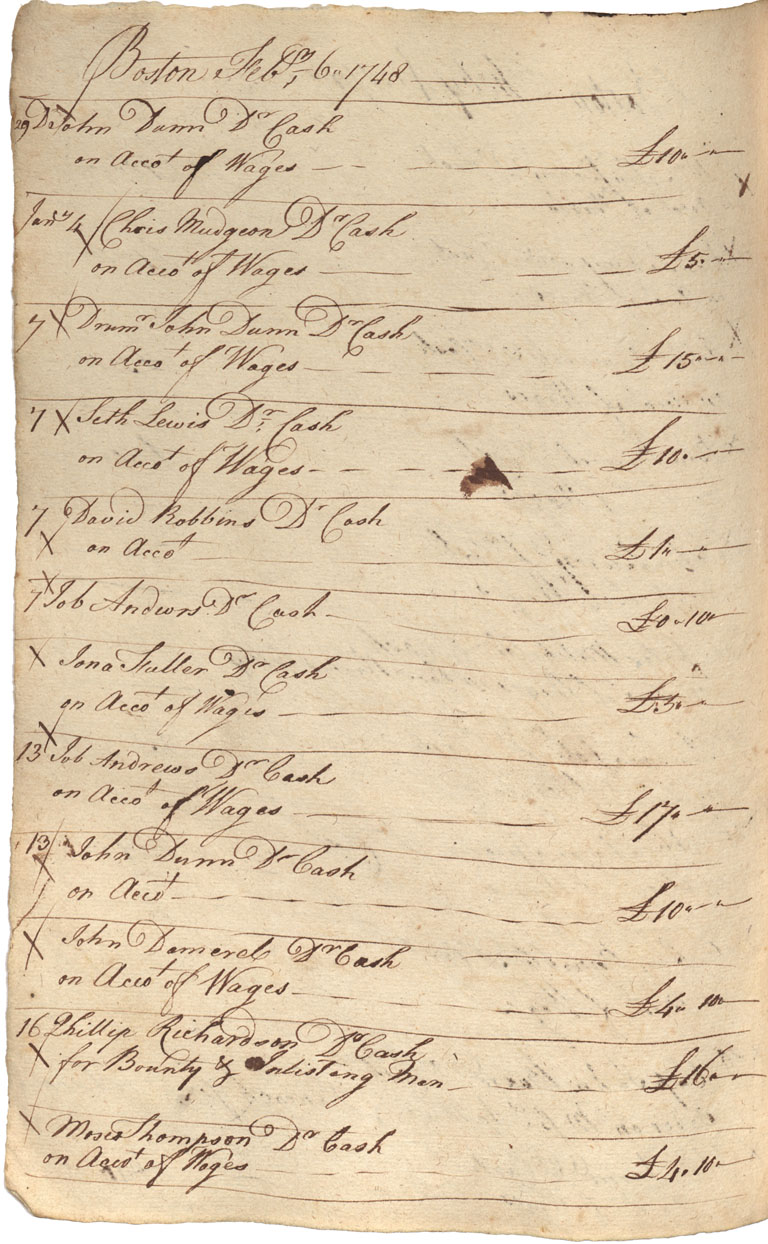 Boston Febry 6" 1748
29 D X John Dunn Dr Cash
on Accot of Wages £10"-"
Jany 4 X Chris Mudgeon Dr Cash
on Accot of Wages £5"-"
7 X Drumr John Dunn Dr Cash
on Accot of Wages £15"-"
7 X Seth Lewis Dr Cash
on Accot of Wages £10"-
7 David Robbins Dr Cash
X on Accot £1"-"
7 X Job Andwrs Dr Cash £0"10"
X Jona Fuller Dr Cash
on Accot of Wages £3"-"
13 X Job Andrews Dr Cash
on Accot of Wages £17"-"
13 X John Dunn Dr Cash
on Accot £10"-"
X John Domerel Dr Cash
on Accot of Wages £4"10"
16 Phillip Richardson Dr Cash
X for Bounty & Inlisting Men £16"-"
X Moses Thompson Dr Cash
on Accot of Wages £4"10"